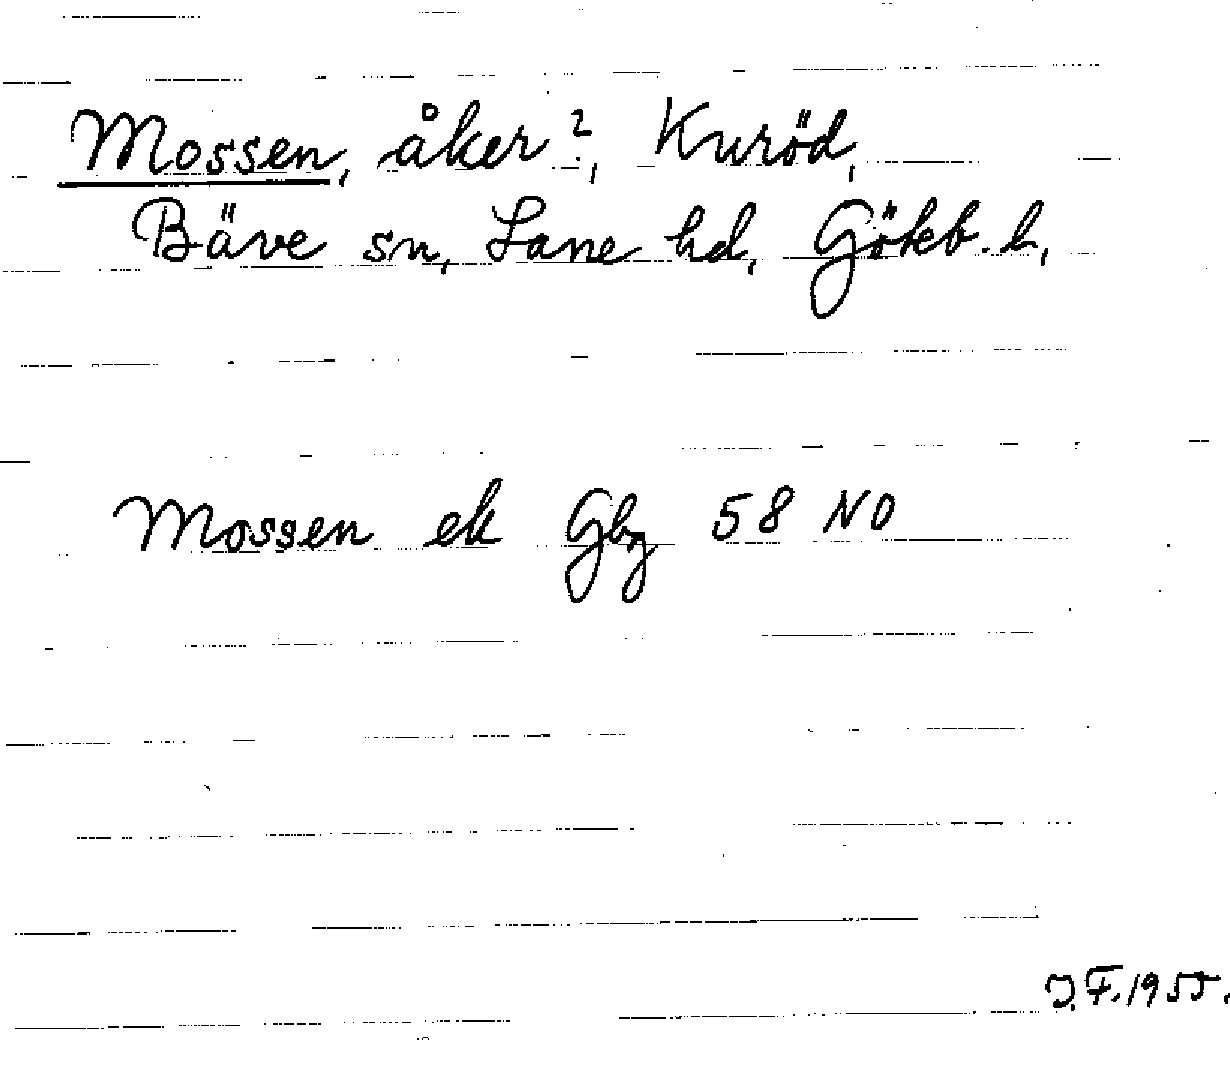 Mossen, åker?, Kuröd,
Bäve sn, Lane hd, Göteb. l,
Mossen ek Gbg 58 NO
J.F. 1955.